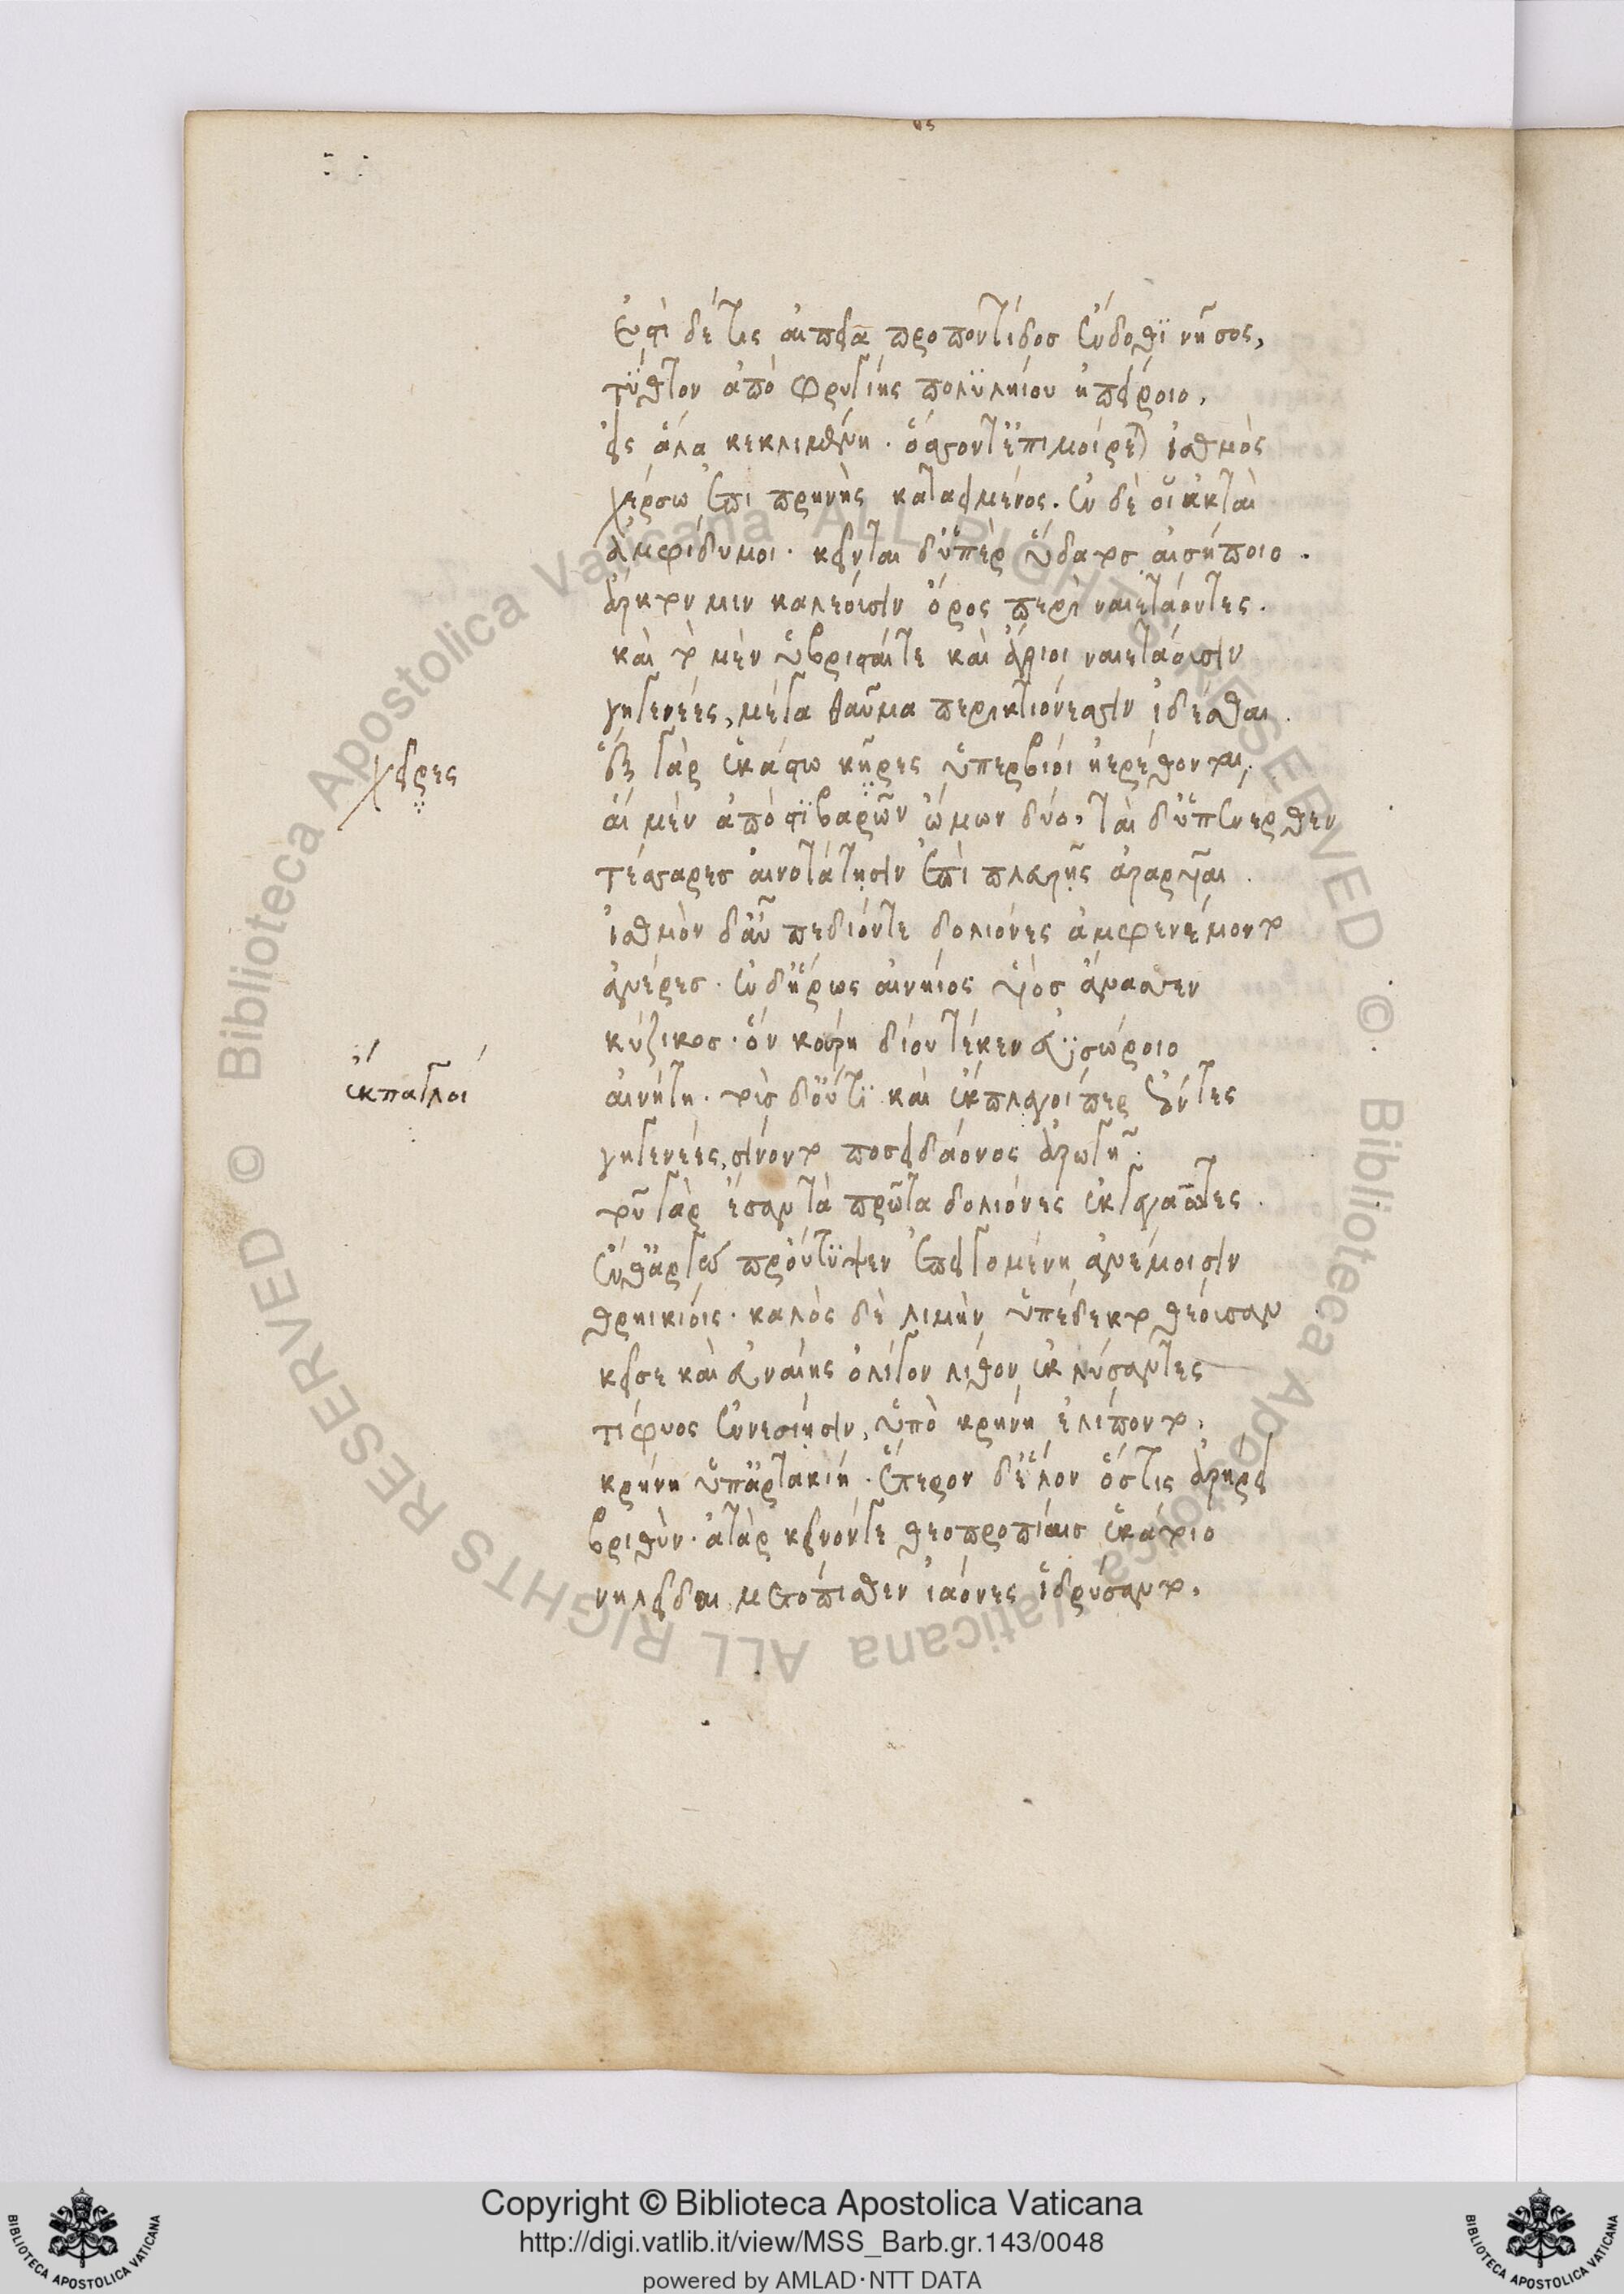 ἔστι δέ τις αἰπεῖα προποντίδος ἔνδοθϊ νῆσος,
τϋτθὸν ἀπὸ φρυγίης πολϋληίου ἠπείροιο,
εἰς ἅλα κεκλιμένη. ὅσσον τ' ἐπιμοίρεται ἰσθμὸς
χέρσω ἔπι πρηνὴς καταειμένος. ἐν δέ οἱ ἀκταὶ
ἀμφίδυμοι. κεῖνται δ' ὑπὲρ ὕδατος αἰσήποιο.
ἄρκτον μιν καλέουσιν ὄρος περιναιετάοντες.
καὶ τὸ μὲν ὑβρισταί τε καὶ ἄγριοι ναιετάουσιν
γηγενέες, μέγα θαῦμα περικτιόνεσσιν ἰδέσθαι.
ἓξ γὰρ ἑκάστω κῆρες ὑπερβίοι ἠερέθονται,
χεῖρες
αἱ μὲν ἀπὸ στϊβαρῶν ὤμων δύο, ταὶ δ' ὑπένερθεν
τέσσαρες αἰνοτάτῃσιν ἐπὶ πλευρῇς ἀραρυῖαι.
ἰσθμὸν δ' αὖ πεδίον τε δολιόνες ἀμφενέμοντο
ἀνέρες. ἐν δ' ἥρως αἰνήιος υἱὸς ἄνασσεν
κύζικος. ὃν κούρη δίου τέκεν εὐϋσώροιο
αἰνήτη. τοὺς δ' οὔτϊ καὶ ἔκπλαγοί περ ἐόντες
ἔκπαγλοι
γηγενέες, σίνοντο ποσειδάονος ἀρωγῇ.
τοῦ γὰρ ἔσαν τὰ πρῶτα δολιόνες ἐκγεγαῶτες.
ἔνθ' ἀργὼ προὔτϋψεν ἐπειγομένη ἀνέμοισιν
θρηικίοις. καλὸς δὲ λιμὴν ὑπέδεκτο θέουσαν
κεῖσε καὶ εὐναίης ὀλίγον λίθον ἐκλύσαντες
τίφυος ἐννεσίῃσιν, ὑπὸ κρήνη ἐλίποντο,
κρήνη ὑπ' ἀρτακίη. ἕτερον δ' ἕλον ὅστις ἀρήρει
βριθύν. ἀτὰρ κεῖνόν τε θεοπροπίαις ἑκάτοιο
νηλεῖδαι μετόπισθεν ἰάονες ἱδρύσαντο,
Copyright © Biblioteca Apostolica Vaticana
http://digi.vatlib.it/view/MSS_Barb.gr.143/0048
powered by AMLAD·NTT DATA
BIBLIOTECA APOSTOLICA VATICANA
BIBLIOTECA APOSTOLICA VATICANA
© Biblioteca Apostolica Vaticana ALL RIGHTS RESERVED
© Biblioteca Apostolica Vaticana ALL RIGHTS RESERVED